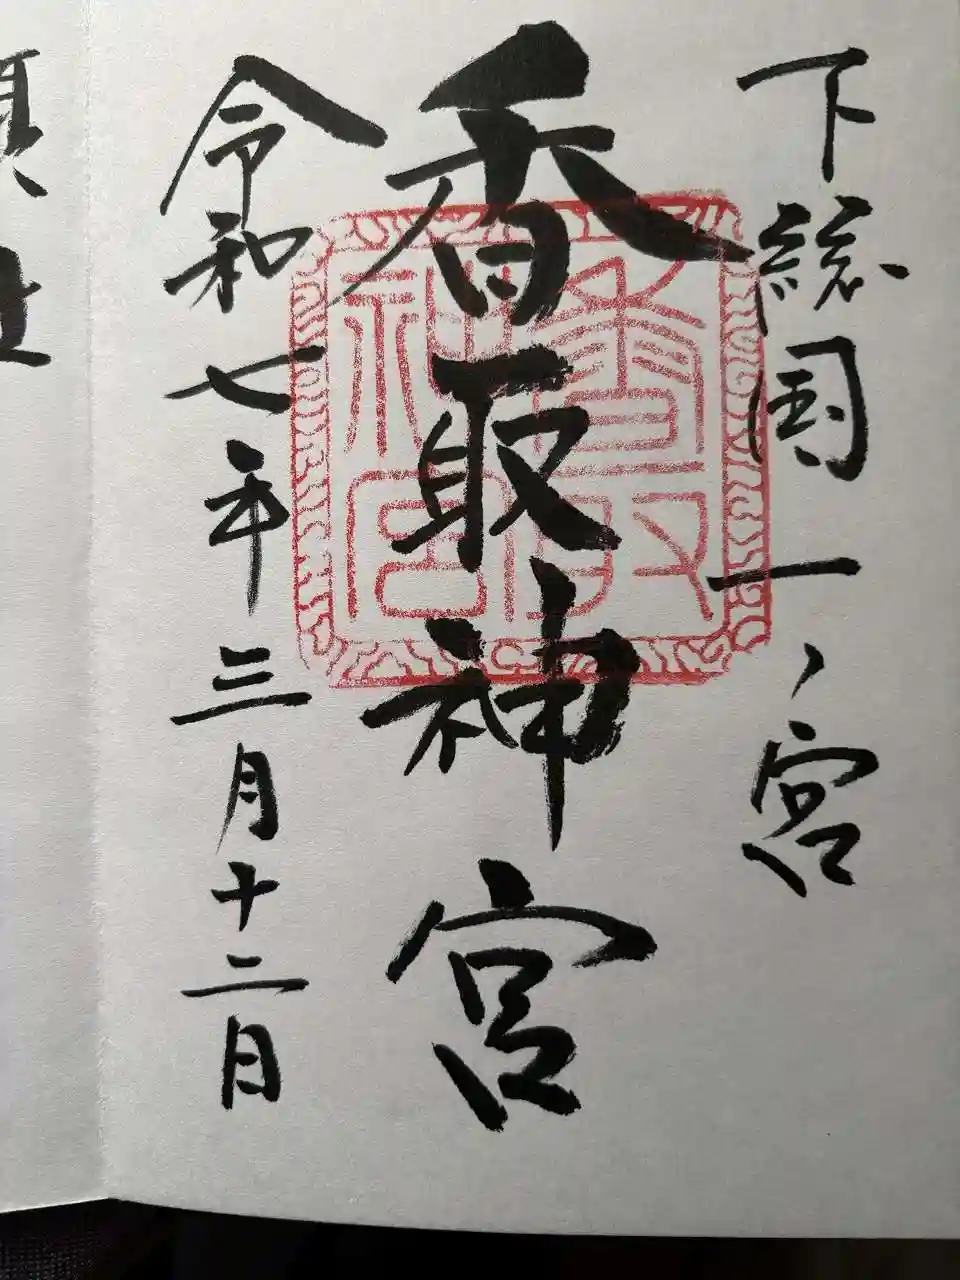 下総国一ノ宮
香取神宮
令和七年三月十二日
香取
神宮